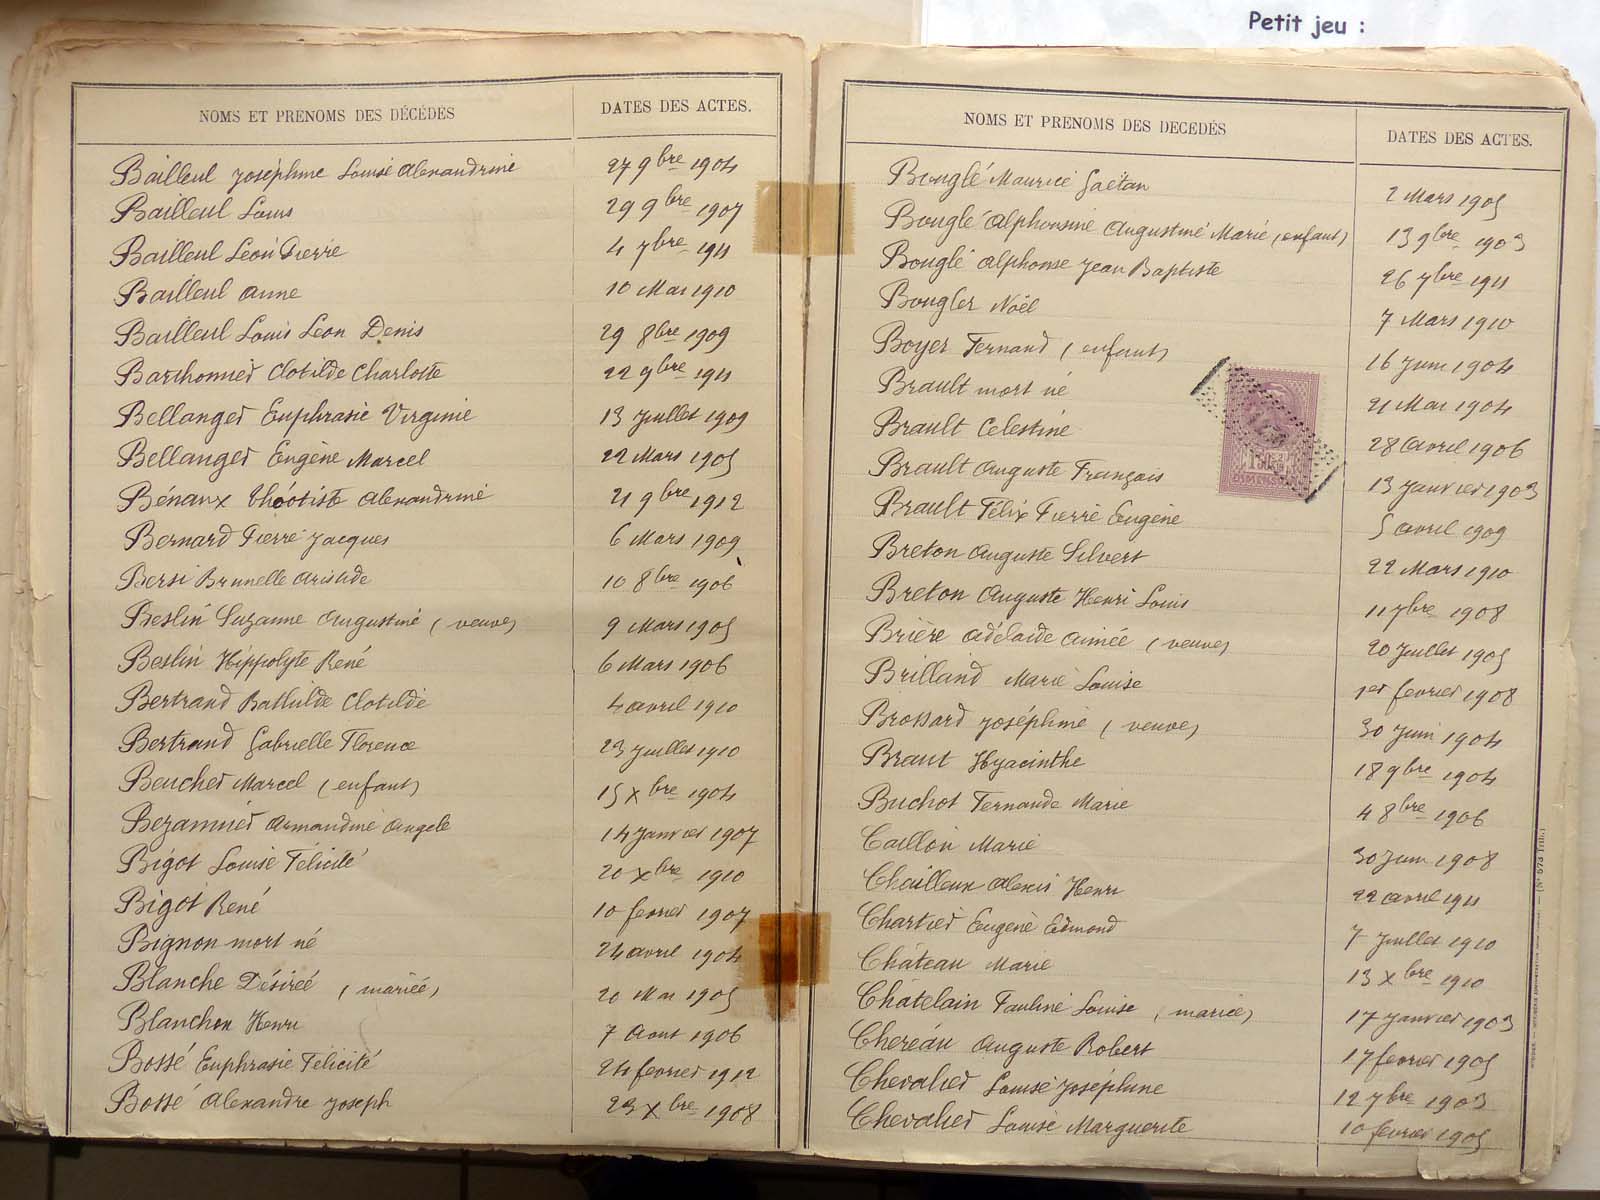 Petit jeu :
NOMS ET PRENOMS DES DÉCÉDÉS DATES DES ACTES.
Bailleul Joséphine Louise Alexandrine 27 9bre 1904
Bailleul Louis 29 9bre 1907
Bailleul Léon Pierre 4 7bre 1911
Bailleul Anne 10 Mai 1910
Bailleul Louis Léon Denis 29 8bre 1909
Barthonnier Clotilde Charlotte 22 9bre 1911
Bellanger Euphrasie Virginie 13 Juillet 1909
Bellanger Eugène Marcel 22 Mars 1905
Bénaux Théotiste Alexandrine 21 9bre 1912
Bernard Pierre Jacques 6 Mars 1909
Bersi Brunelle Aristide 10 8bre 1906
Beslin Suzanne Augustine (veuve) 9 Mars 1905
Beslin Hippolyte René 6 Mars 1906
Bertrand Bathilde Clotilde 4 avril 1910
Bertrand Gabrielle Florence 23 Juillet 1910
Beucher Marcel (enfant) 15 Xbre 1904
Bezannier Armandine Angèle 14 Janvier 1907
Bigot Louise Félicité 20 Xbre 1910
Bigot René 10 février 1907
Bignon mort né 24 avril 1904
Blanche Désirée (mariée) 20 Mai 1905
Blanchon Henri 7 Aout 1906
Bossé Euphrasie Félicité 24 février 1912
Bossé Alexandre Joseph 23 Xbre 1908
NOMS ET PRENOMS DES DECEDÉS DATES DES ACTES.
Bouglé Maurice Gaëtan 2 Mars 1905
Bouglé Alphonsine Augustine Marie (enfant) 13 9bre 1903
Bouglé Alphonse Jean Baptiste 26 7bre 1911
Bougler Noël 7 Mars 1910
Boyer Fernand (enfant) 16 Juin 1904
Brault mort né 21 Mai 1904
Brault Celestine 28 avril 1906
Brault Auguste François 13 Janvier 1903
Brault Félix Pierre Eugène 5 avril 1909
Breton Auguste Silvert 22 Mars 1910
Breton Auguste Henri Louis 11 7bre 1908
Brière Adélaïde Aimée (veuve) 20 Juillet 1905
Brilland Marie Louise 1er février 1908
Brossard Joséphine (veuve) 30 Juin 1904
Braut Hyacinthe 18 9bre 1904
Buchot Fernande Marie 4 8bre 1906
Caillon Marie 30 Juin 1908
Chailleux Alexis Henri 22 avril 1911
Chartier Eugène Edmond 7 Juillet 1910
Château Marie 13 Xbre 1910
Châtelain Pauline Louise (mariée) 17 Janvier 1903
Chereau Auguste Robert 17 février 1905
Chevalier Louise Joséphine 12 7bre 1903
Chevalier Louise Marguerite 10 février 1905